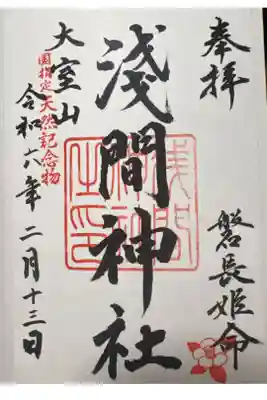 奉拝
磐長姫命
浅間神社
大室山
国指定天然記念物
令和八年二月十三日